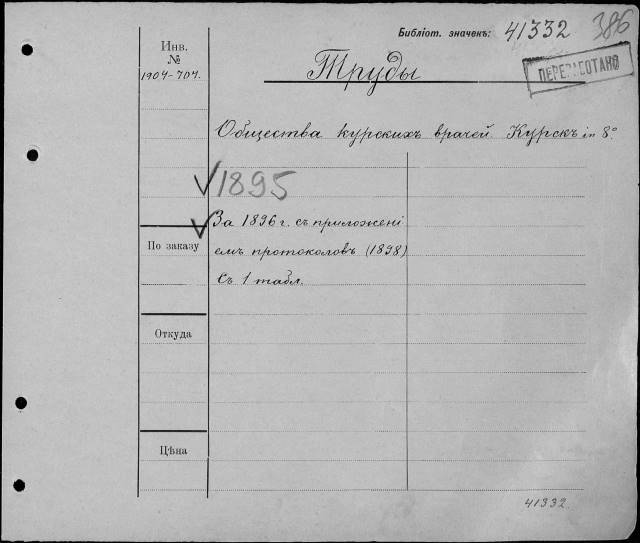 Библіот. значекъ: 41332 386
ПЕРЕРАБОТАНО
Инв.
№
1904-704.
Труды
Общества курскихъ врачей. Курскъ in 8°
1895
За 1896 г. съ приложені
емъ протоколовъ (1898)
Съ 1 табл.
По заказу
Откуда
Цѣна
41332